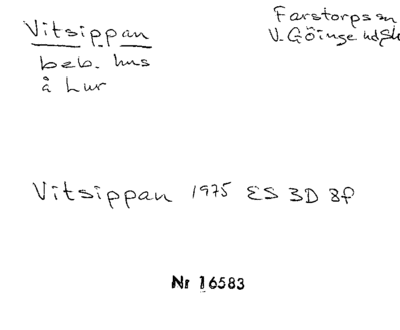 Vitsippan
Farstorps sn
V. Göinge hd Sk
beb. hus
å Lur
Vitsippan 1975 ES 3D 8f
Nr 16583